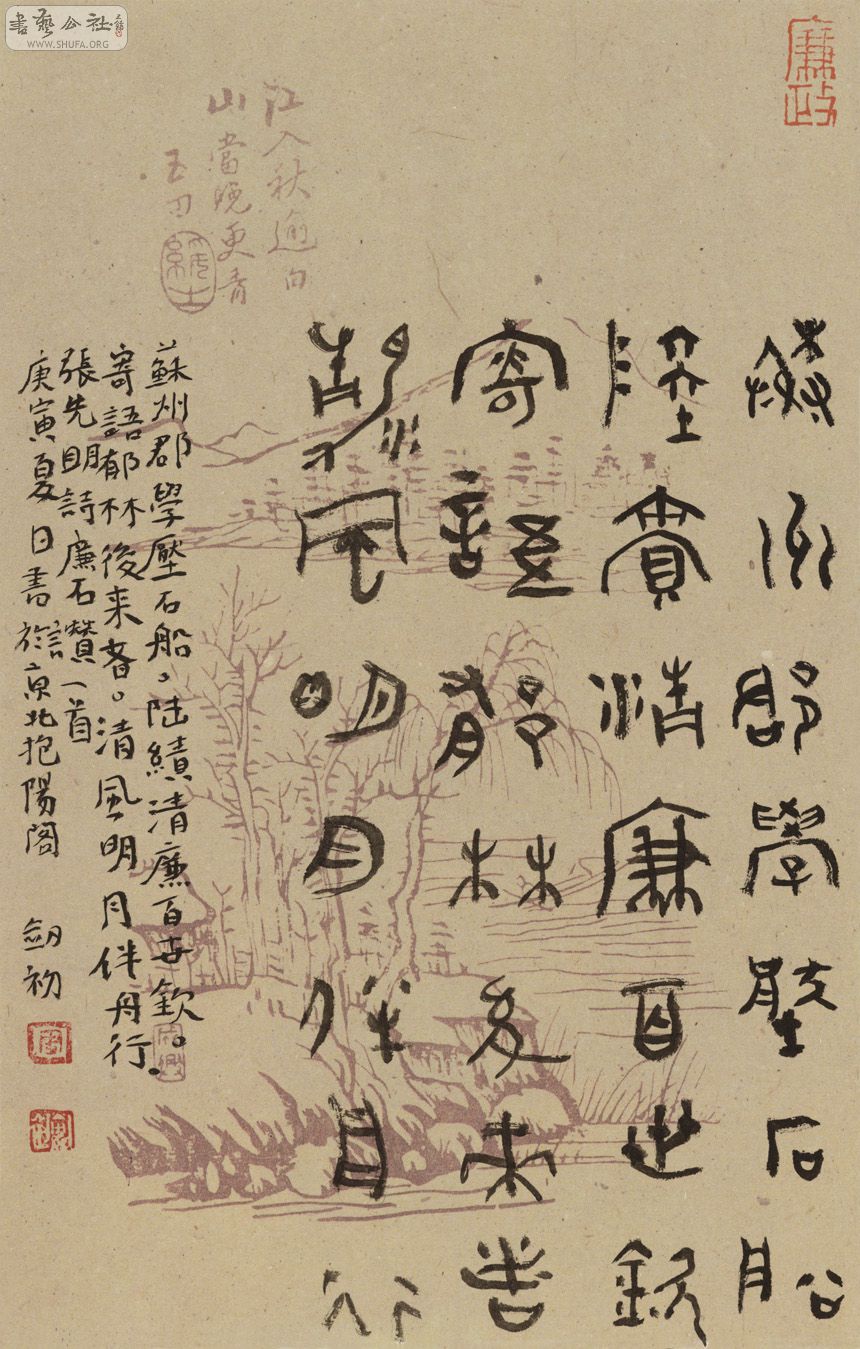 書藝公社
WWW.SHUFA.ORG
廉政
蘇州郡學壓石船
陸績清廉百世欽
寄語郁林後来者
清風明月伴舟行
蘇州郡學壓石船。陸績清廉百世欽。
寄語郁林後来者。清風明月伴舟行。
張先明詩廉石讚一首
庚寅夏日書於京北抱陽閣
劒初
江入秋逾白
山當晚更青